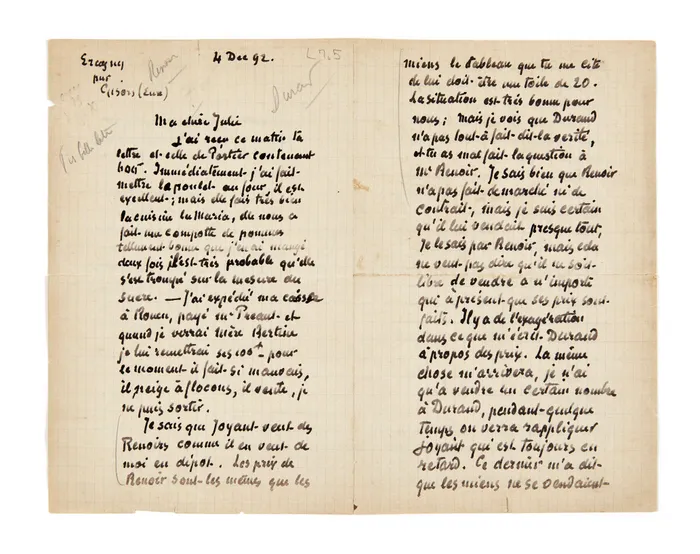 Eragny
par
Gisors (Eure)
Renoir
4 Dec 92.
L75
Durand
Ma chère Julie
J'ai reçu ce matin ta
lettre et celle de Portier contenant
bon. Immédiatement j'ai fait
mettre la poulet au four, il est
excellent; mais elle fais très bien
la cuisine la Maria, elle nous a
fait une compotte de pommes
tellement bonne que j'en ai mangé
deux fois il est très probable qu'elle
s'est trompé sur la mesure du
sucre. — J'ai expédié ma caisse
à Rouen, payé Mr Preaut et
quand je verrai Mère Bertine
je lui remettrai ses 100 f pour
le moment il fait si mauvais,
il neige à flocons, il vente, je
ne puis sortir.
Je sais que Joyant veut des
Renoirs comme il en veut de
moi en dépot. Les prix de
Renoir sont les mêmes que les
miens le tableau que tu me cite
de lui doit être une toile de 20.
La situation est très bonne pour
nous; mais je vois que Durand
n'a pas tout à fait dit la verité,
et tu as mal fait la question à
Mr Renoir. Je sais bien que Renoir
n'a pas fait de marché ni de
contrait, mais je suis certain
qu'il lui vendait presque tout,
Je le sais par Renoir, mais cela
ne veut pas dire qu'il ne soit
libre de vendre a n'importi
qui à présent que ses prix sont
faits. Il y a de l'exagération
dans ce que m'écrit Durand
à propos des prix. La même
chose m'arrivera, je n'ai
qu'à vendre un certain nombre
à Durand, pendant quelque
temps on verra rappliquer
Joyant qui est toujours en
retard. Ce dernier m'a dit
que les miens ne se vendaient